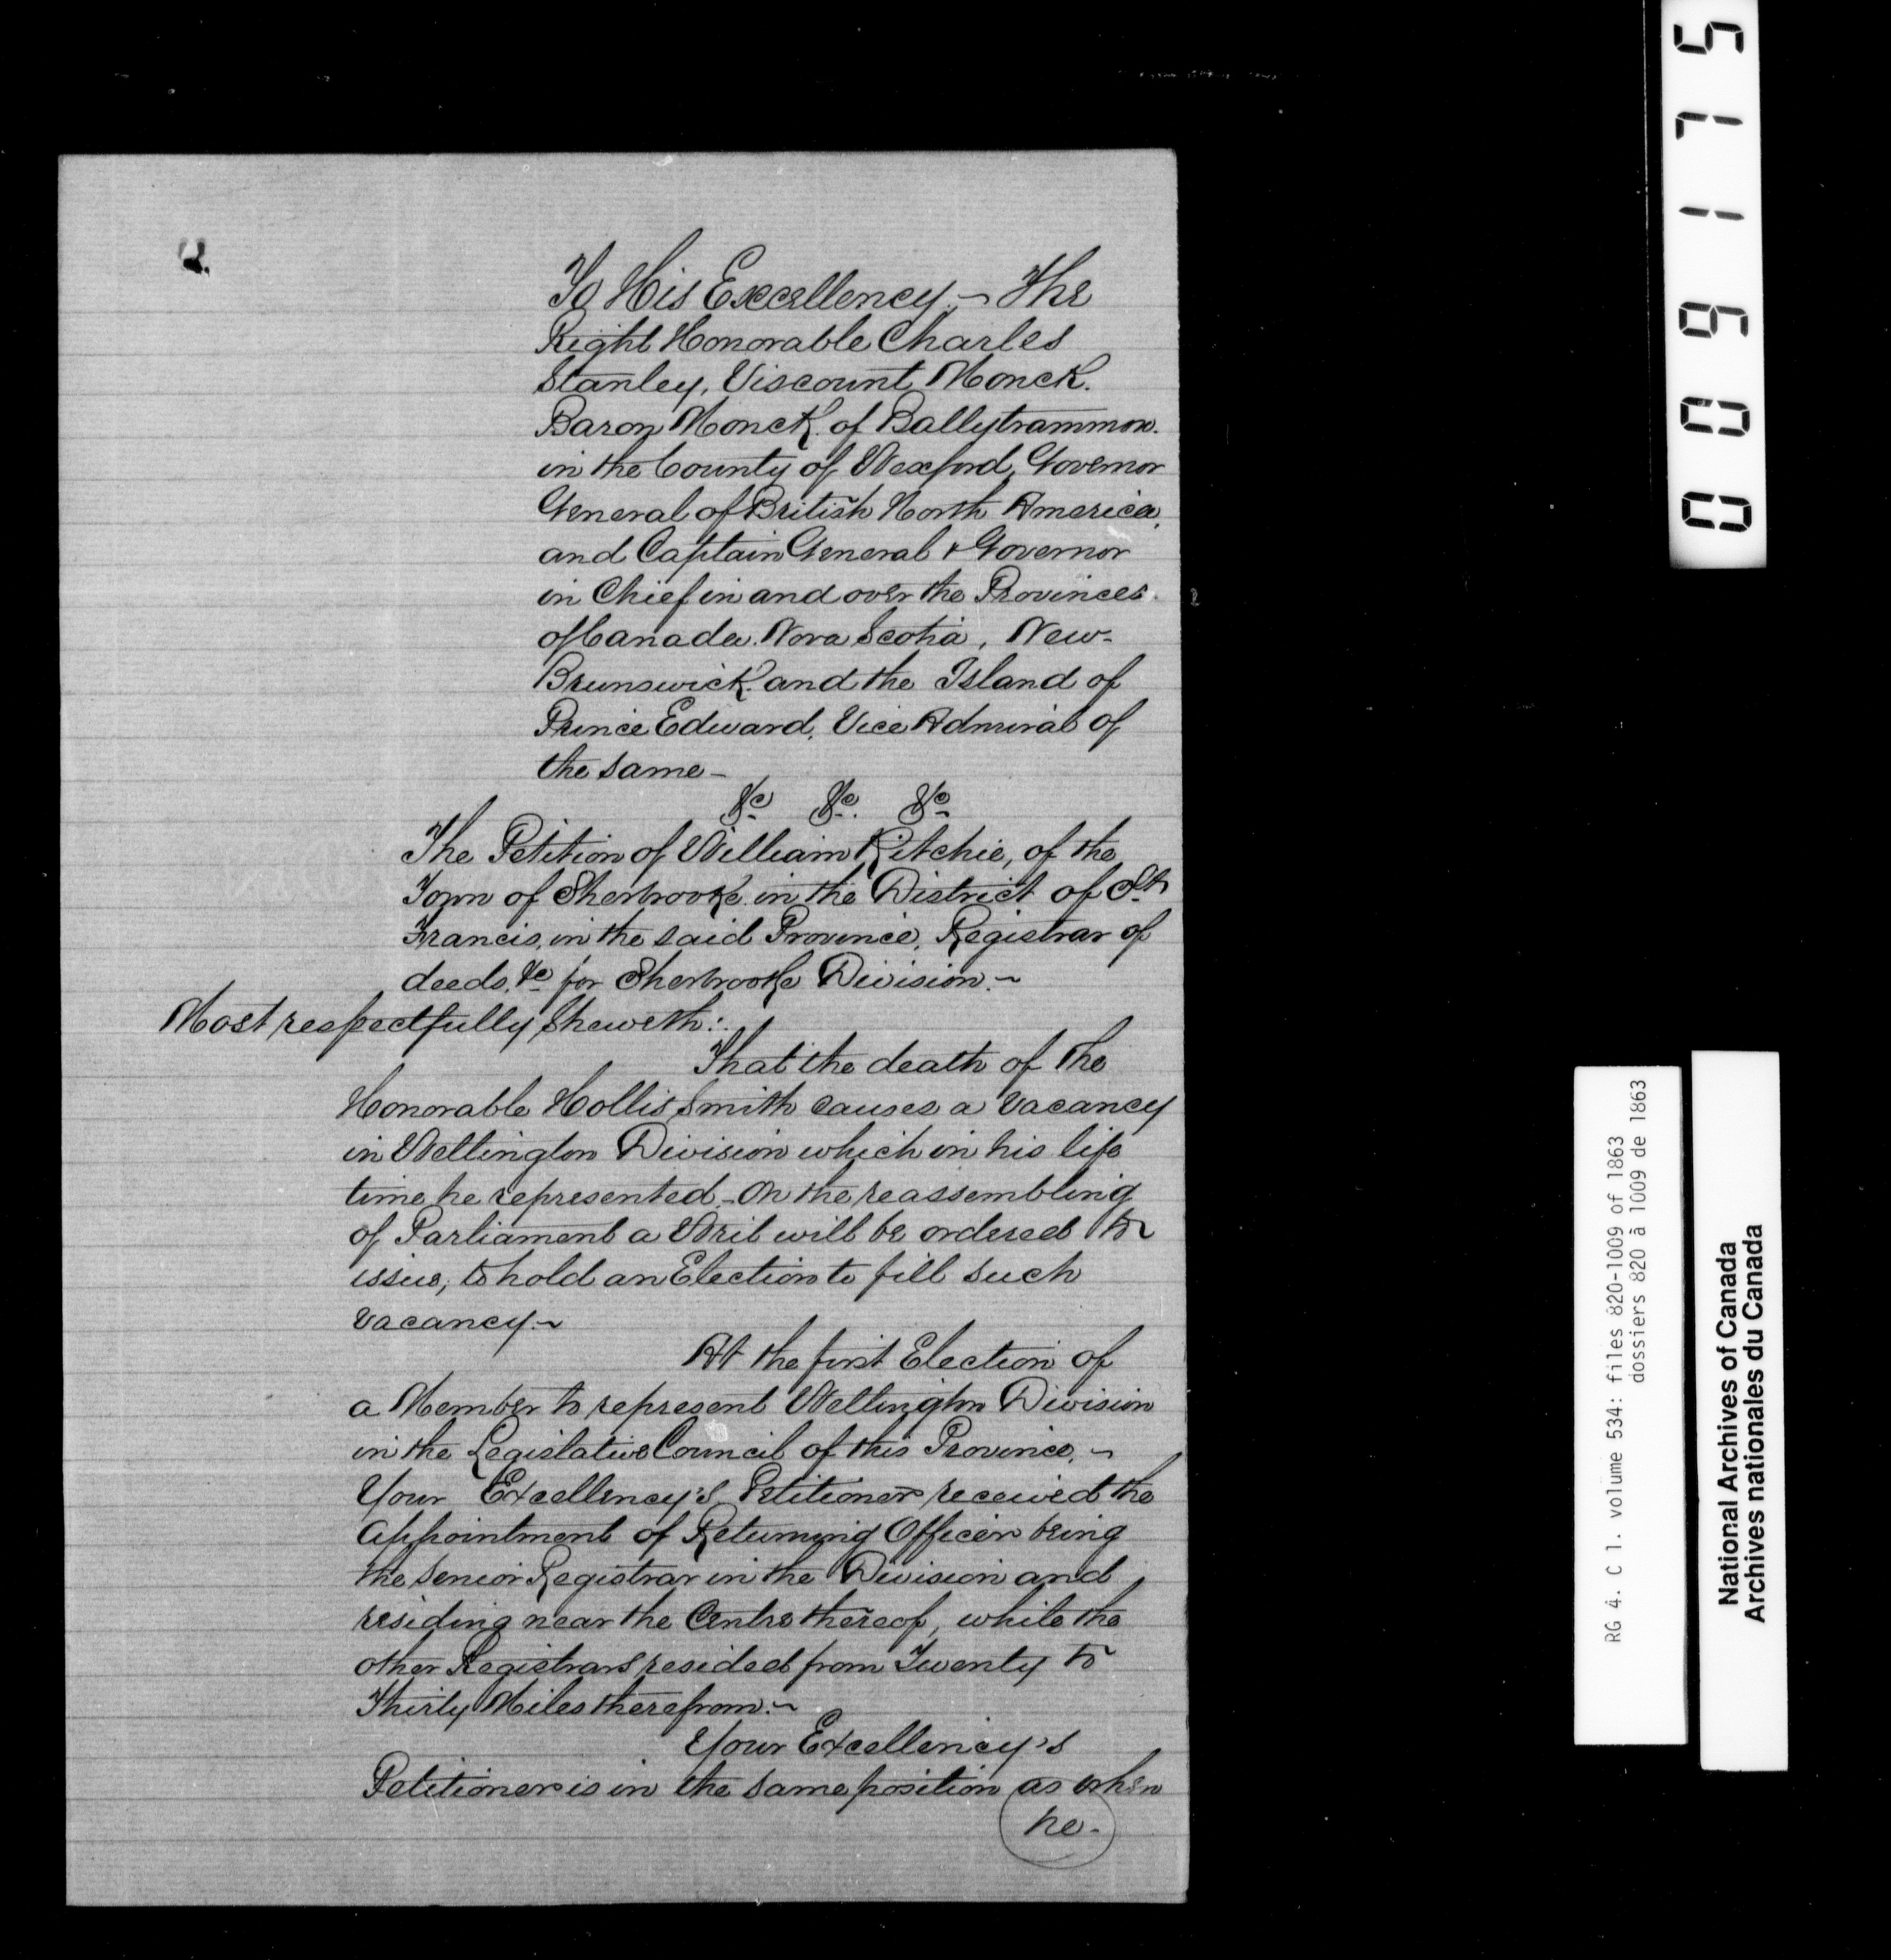 To His Excellency – The
Right Honorable Charles
Stanley, Viscount Monck.
Baron Monck of Ballytrammon.
in the County of Wexford, Governor
General of British North America,
and Captain General & Governor
in Chief in and over the Provinces.
of Canada. Nova Scotia, New-
Brunswick and the Island of
Prince Edward, Vice Admiral of
the same –
&c &c. &c
The Petition of William Ritchie, of the
Town of Sherbrooke in the District of St.
Francis, in the said Province, Registrar of
deeds, &c for Sherbrooke Division. ~
Most respectfully Sheweth:
That the death of the
Honorable Hollis Smith causes a vacancy
in Wellington Division which in his life
time he represented – On the reassembling
of Parliament a Writ will be ordered to
issue, to hold an Election to fill such
vacancy. ~
At the first Election of
a Member to represent Wellington Division
in the Legislative Council of this Province, ~
Your Excellency's Petitioner received the
appointment of Returning Officer being
the Senior Registrar in the Division and
residing near the Centre thereof, while the
other Registrars resided from Twenty to
Thirty Miles therefrom. ~
Your Excellency's
Petitioner is in the same position as when
he-
009175
RG 4. C 1. volume 534: files 820-1009 of 1863
dossiers 820 à 1009 de 1863
National Archives of Canada
Archives nationales du Canada